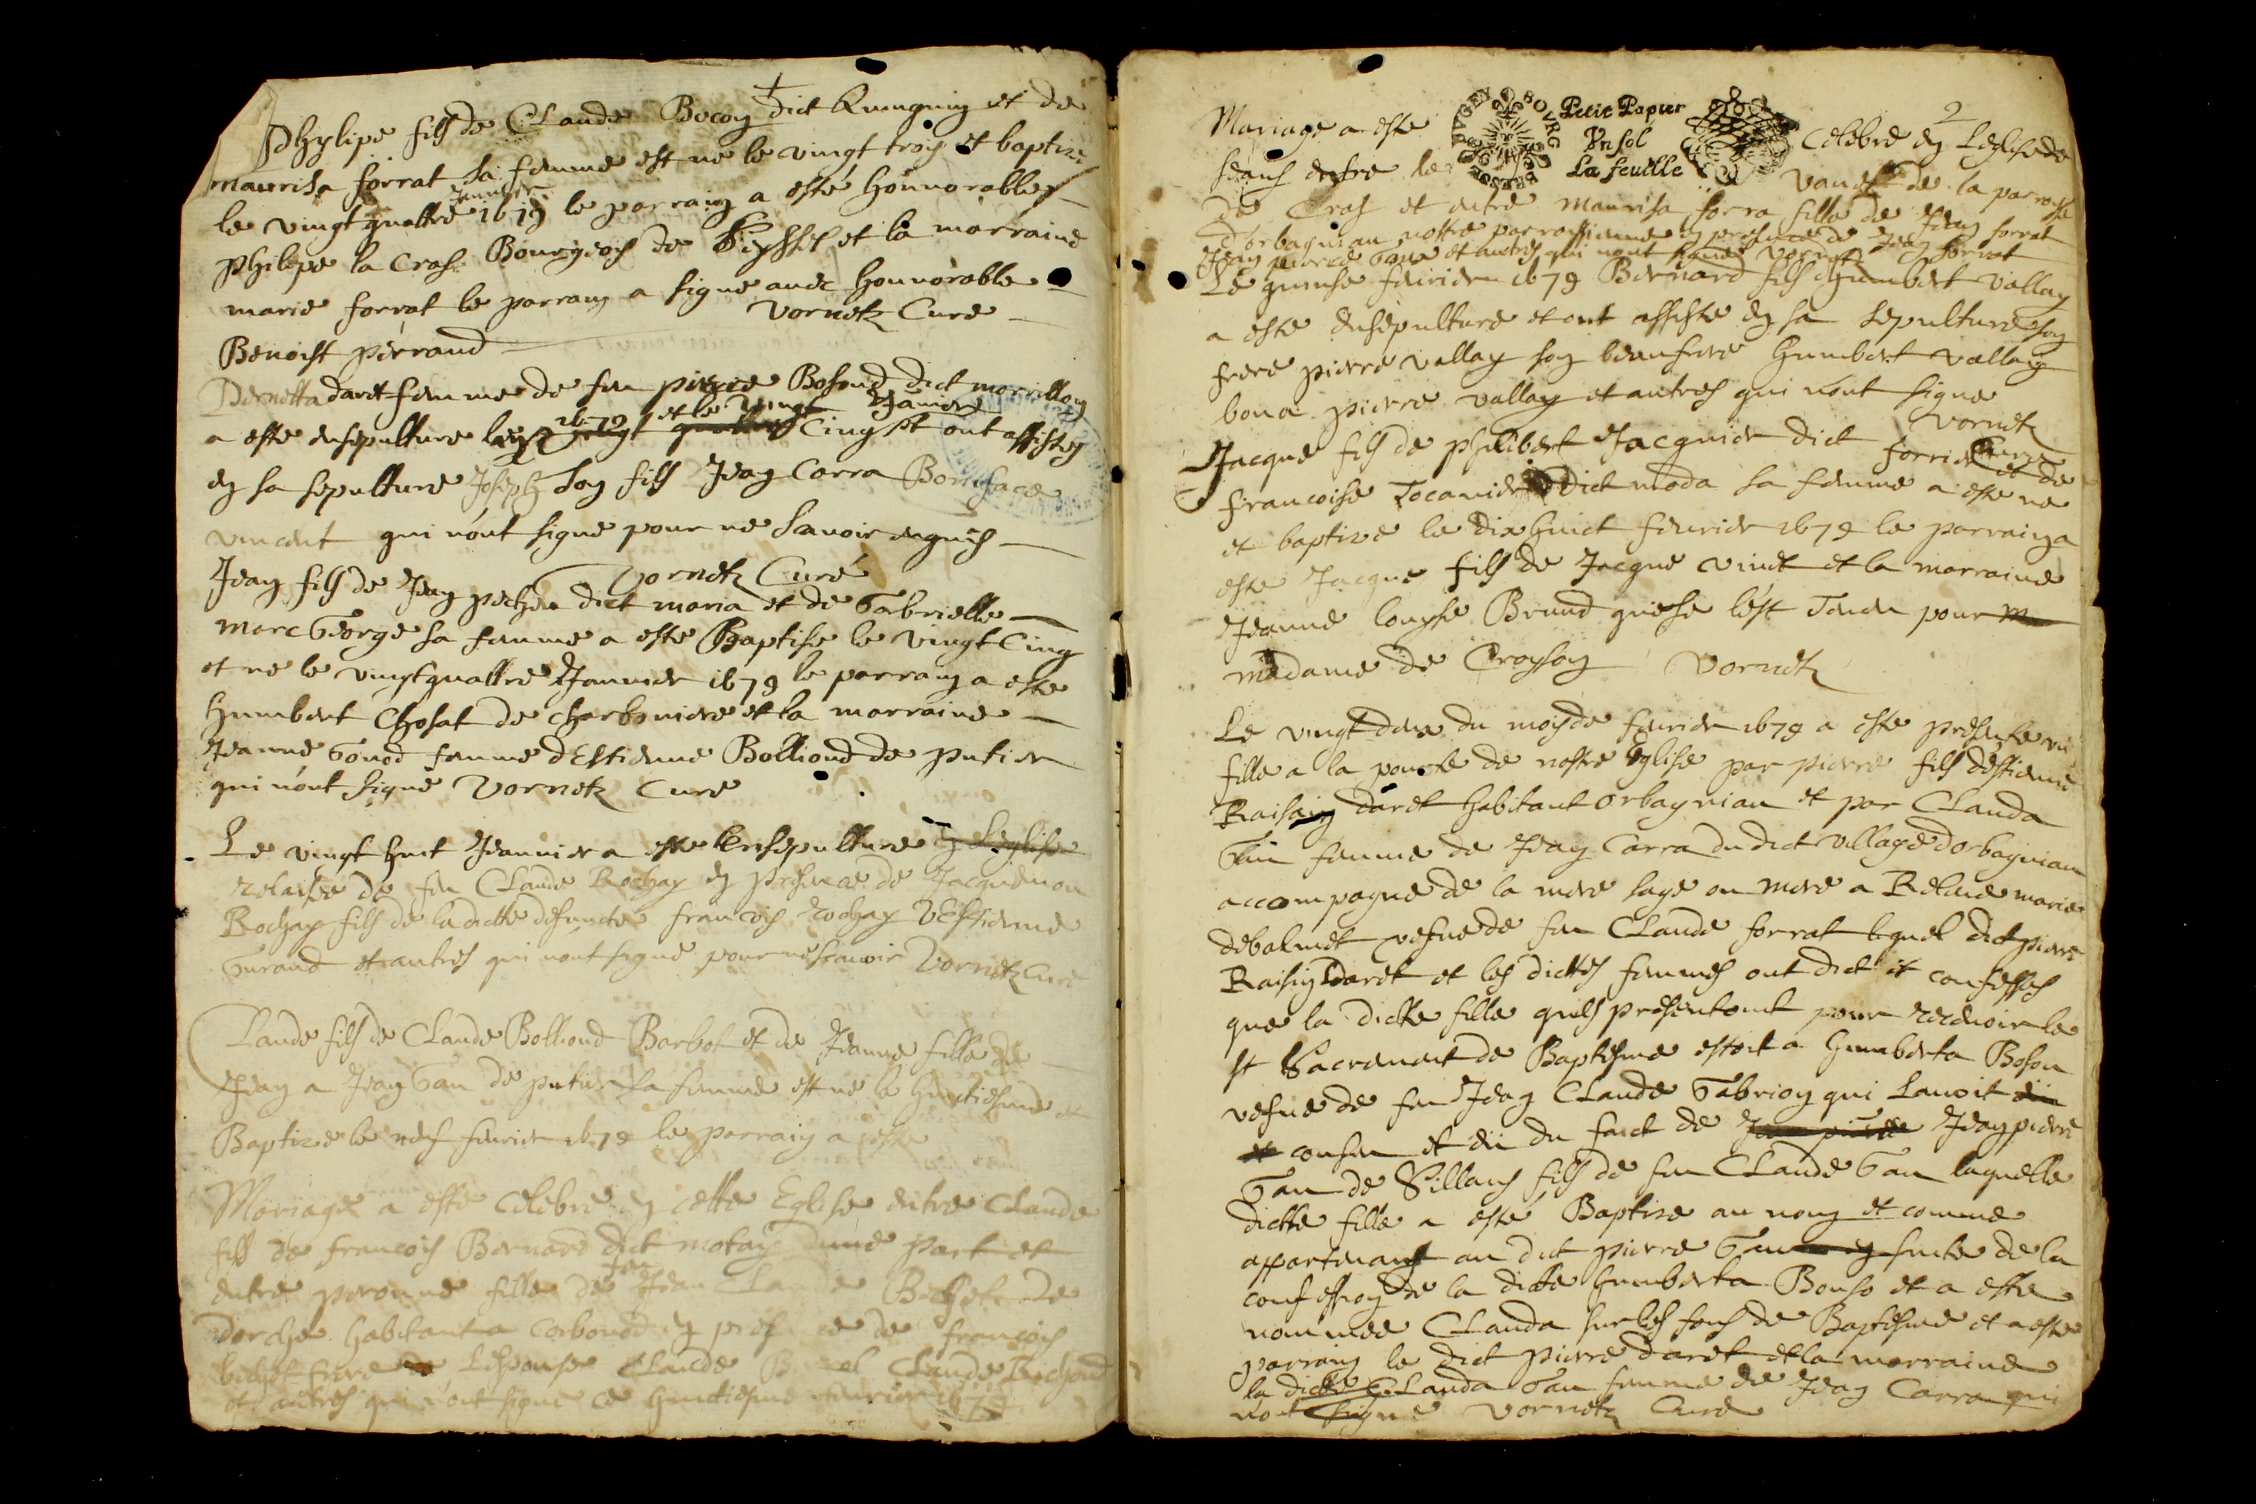 Phylipe fils de Claude Bocoy dict et de
maurisa forrat sa femme est ne le vingt trois et baptize
le vingt quattre Januier 1679 le parraing a esté honnorable
Philipe la Cras Bourgeois de Seyssel et la marraine
marie forrat le parraing a signe auec honnorable
Benoist perraud Vornetz Cure
Dernetta daret femme de feu pierre Bosond dict morillon
a este ensepulture 1679 et le vingt Januier Cing et ont assistez
en sa sepulture Joseph son fils Jean Carra Boniface
vincent qui n'ont signe pour ne scauoir enquis
Vornetz Curé
Jean fils de Jean pecheu dict maria et de Gabrielle
marc George sa femme a este Baptise le vingt Cing
et ne le vingtquattre Januier 1679 le parraing a este
humbert Chosat de charboniere et la marraine
Jeanne Gonod femme d'Estienne Bolliond de putier
qui n'ont signe Vornetz Cure
Le vingt huit Jeanuier a este Ensepulture en Leglise
relaisse de feu Claude Rochay en presence de Jacquemon
Rochay fils de ladicte defuncte francois rochay Estienne
Gurand et autres qui nont signe pour ne scauoir Vornetz Cure
Claude fils de Claude Bolliond Barbot et de Jeanne fille de
Jean a Jean Gau de putier sa femme est ne le huictiesme et
Baptize le neuf feurier 1679 le parraing a este
Mariage a esté Celebre en cette Eglise entre Claude
fils de francois Bernard dict motay d'une part et
entre peronne fille de Jean Bochet de
dorche habitant a Corbonod en presence de francois
bochet frere de Lespouse Claude Claude Bochard
et autres qui n'ont signe ce huictiesme feurier 1679
2
BVGEY BOVRG BRESSE
Petit Papier
Vn sol
La feuille
Mariage a este Celebre en Leglise de
seans entre le vande de la parroisse
de Cras et entre maurisa forra fille de Jean forrat
d'orbagnian nostre parroissienne en presence de Jean forrat
Jean pierre Gau et autres qui nont signe Vornetz
Le quinse feurier 1679 Bernard fils humbert vallay
a este ensepulture et ont assiste en sa sepulture son
frere pierre vallay son beaufrere humbert vallay
bona pierre vallay et autres qui nont signe
Vornetz Cure
Jacque fils de philibert Jacquier dict forrier et de
francoise Tocanier dict moda sa femme a este ne
et baptize le dix huict feurier 1679 le parraing a
este Jacque fils de Jacque vinet et la marraine
Jeanne louyse Brund qui se lest Teneu pour
madame de Croyson Vornetz
Le vingt deux du mois de feurier 1679 a este presente un
fille a la pourte de nostre Eglise par pierre fils d'estienne
Raisaing daret habitant orbagnian et par Clauda
Gau femme de Jean Carra du dict village d'orbagniam
accompagne de la mere sage ou mere a Releue marie
debalmet vefue de feu Claude forrat lequel dict pierre
Raising daret et les dictes femmes ont dict et confesses
que la dicte fille quils presentoint pour recepuoir le
st Sacrement de Baptesme estoit a humberta Boson
vefue de feu Jean Claude Gabrion qui lauoit
conseu et eu du faict de Jean pierre
Gau de Sillans fils de feu Claude Gau laquelle
dicte fille a esté Baptize au nong et comme
appartenant au dict pierre Gau suite de la
confession de la dicte humberta Bonso et a este
nommee Clauda sur les fons de Baptesme et a este
parraing le dict pierre daret et la marraine
la dicte Clauda Gau femme de Jean Carra qui
n'ont signe Vornetz Cure